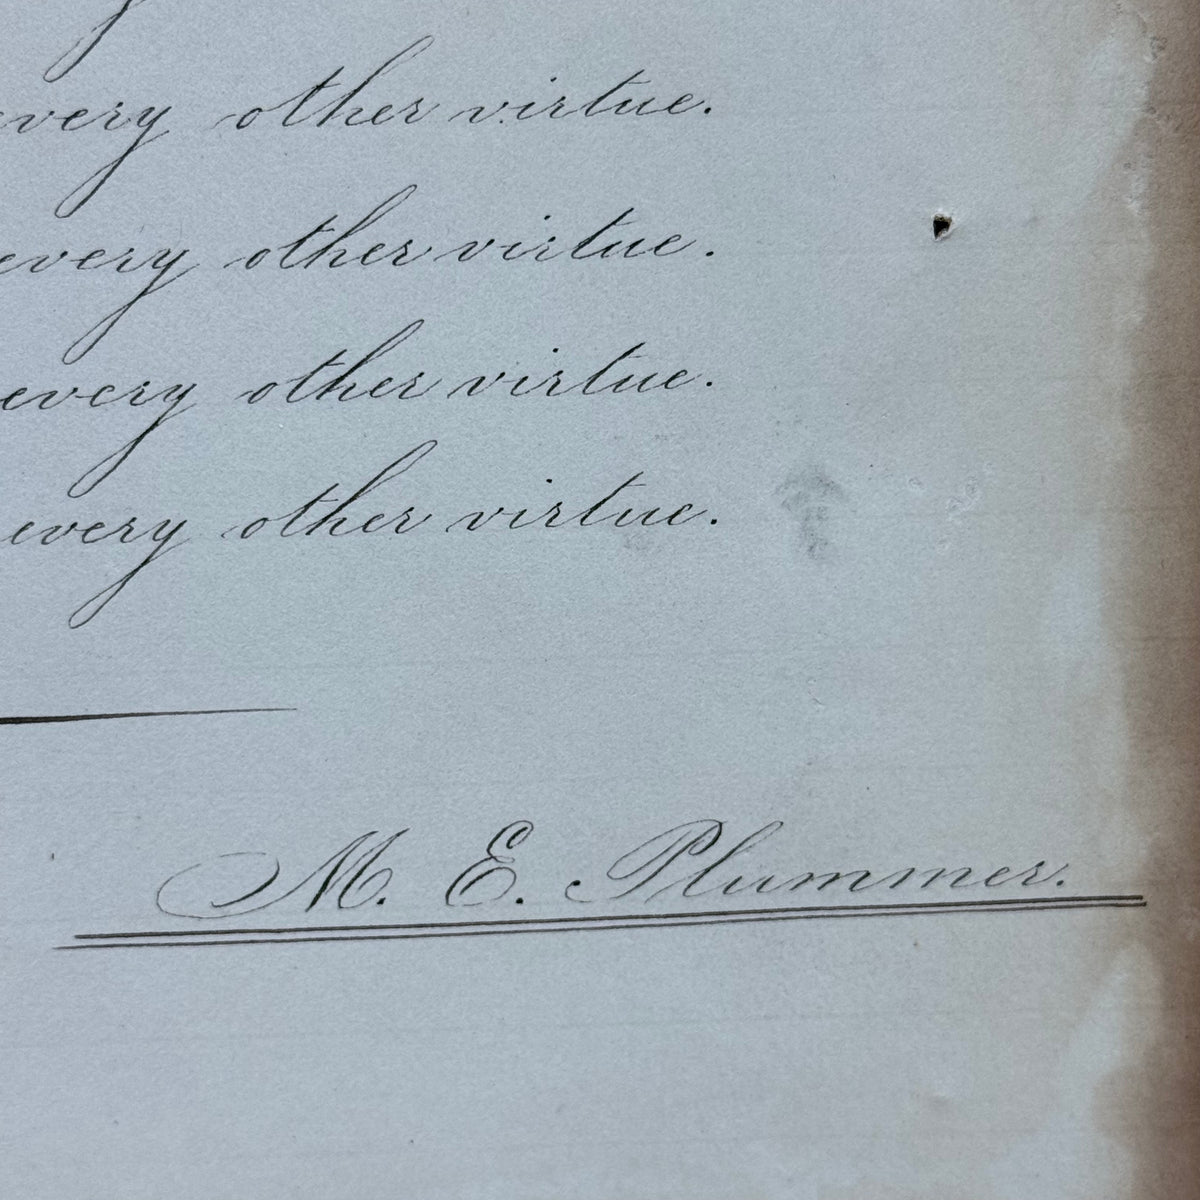 every other virtue.
every other virtue.
every other virtue.
every other virtue.
M. E. Plummer.